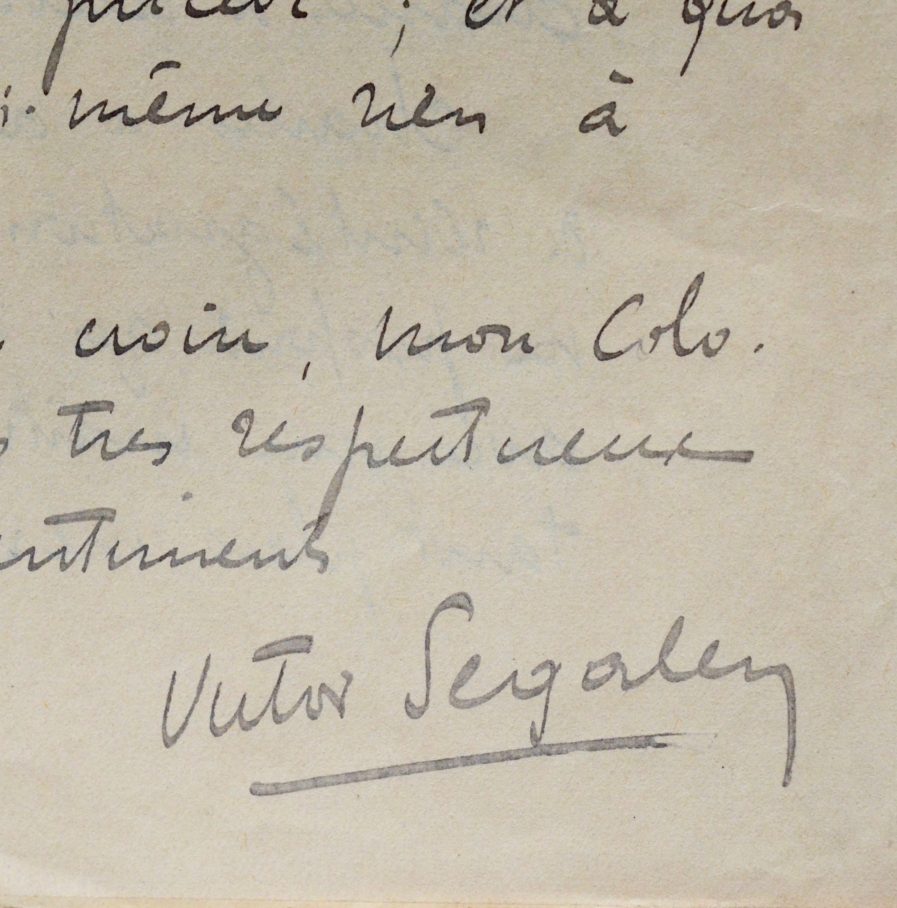 ; et à quoi
même rien à
croire, mon Colo.
tres respectueux
entiments
Victor Segalen